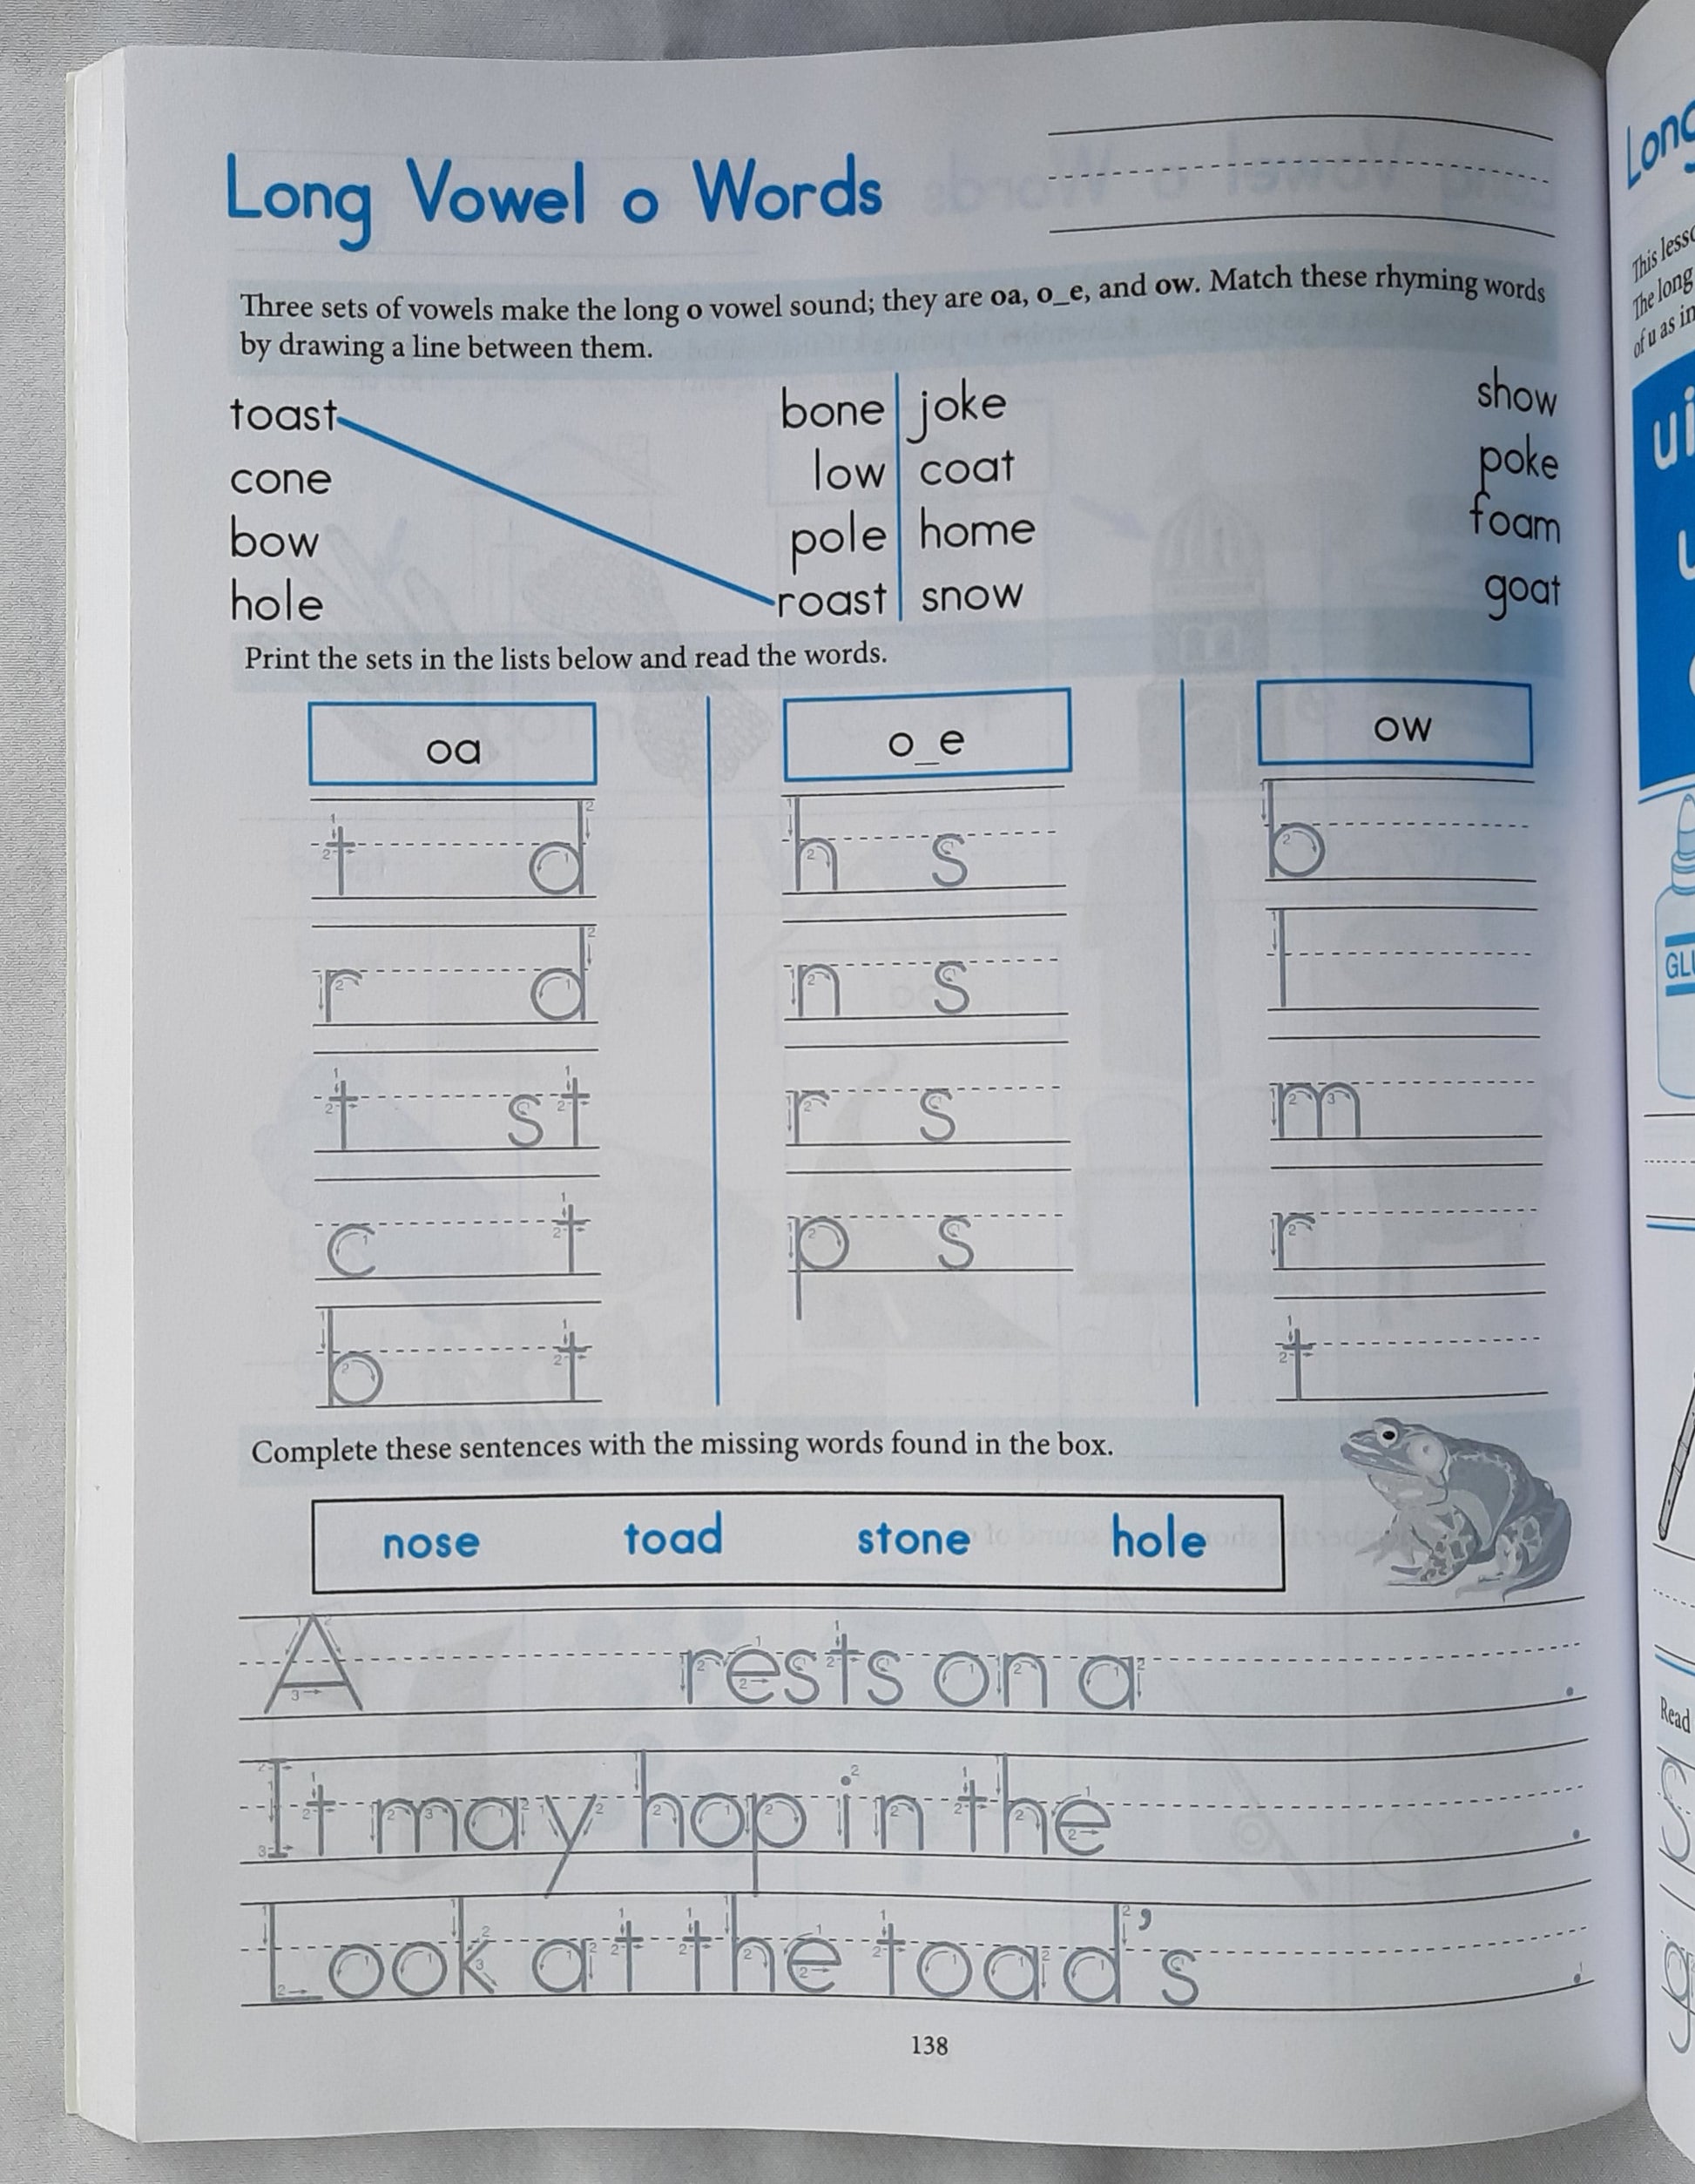 Long Vowel o Words
Three sets of vowels make the long o vowel sound; they are oa, o_e, and ow. Match these rhyming words
by drawing a line between them.
toast bone joke show
cone low coat poke
bow pole home foam
hole roast snow goat
Print the sets in the lists below and read the words.
oa o_e ow
t d h s b
r d n s l
t st r s m
c t p s r
b t t
Complete these sentences with the missing words found in the box.
nose toad stone hole
A rests on a .
It may hop in the .
Look at the toad's .
138
Long
This less
The long
of u as in
ui
u
GLU
Read